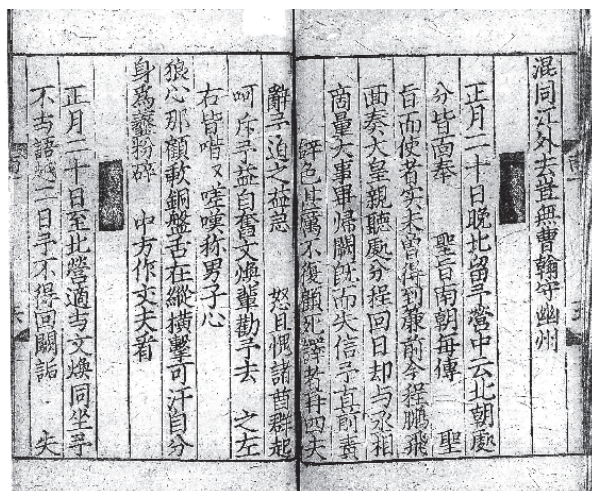 混同江外去豈無曹翰守幽州
正月二十日晚北留予營中云北朝處
分皆面奉　聖旨南朝每傳　聖
旨而使者实未曾得到簾前今程鵬飛
面奏大皇親聽處分程回日却与丞相
商量大事畢歸闕既而失信予直前責
辭色甚厲不復顧死譯者再四失
辭予迫之益急　怒且愧諸酋群起
呵斥予益自奮文煥輩勸予去　之左
右皆唶々嗟嘆称男子心
狼心那顧歃銅盤舌在縱橫擊可汗自分
身為虀粉碎　中方作丈夫看
正月二十日至北營適与文煥同坐予
不与語越二日予不得回闕詬　失